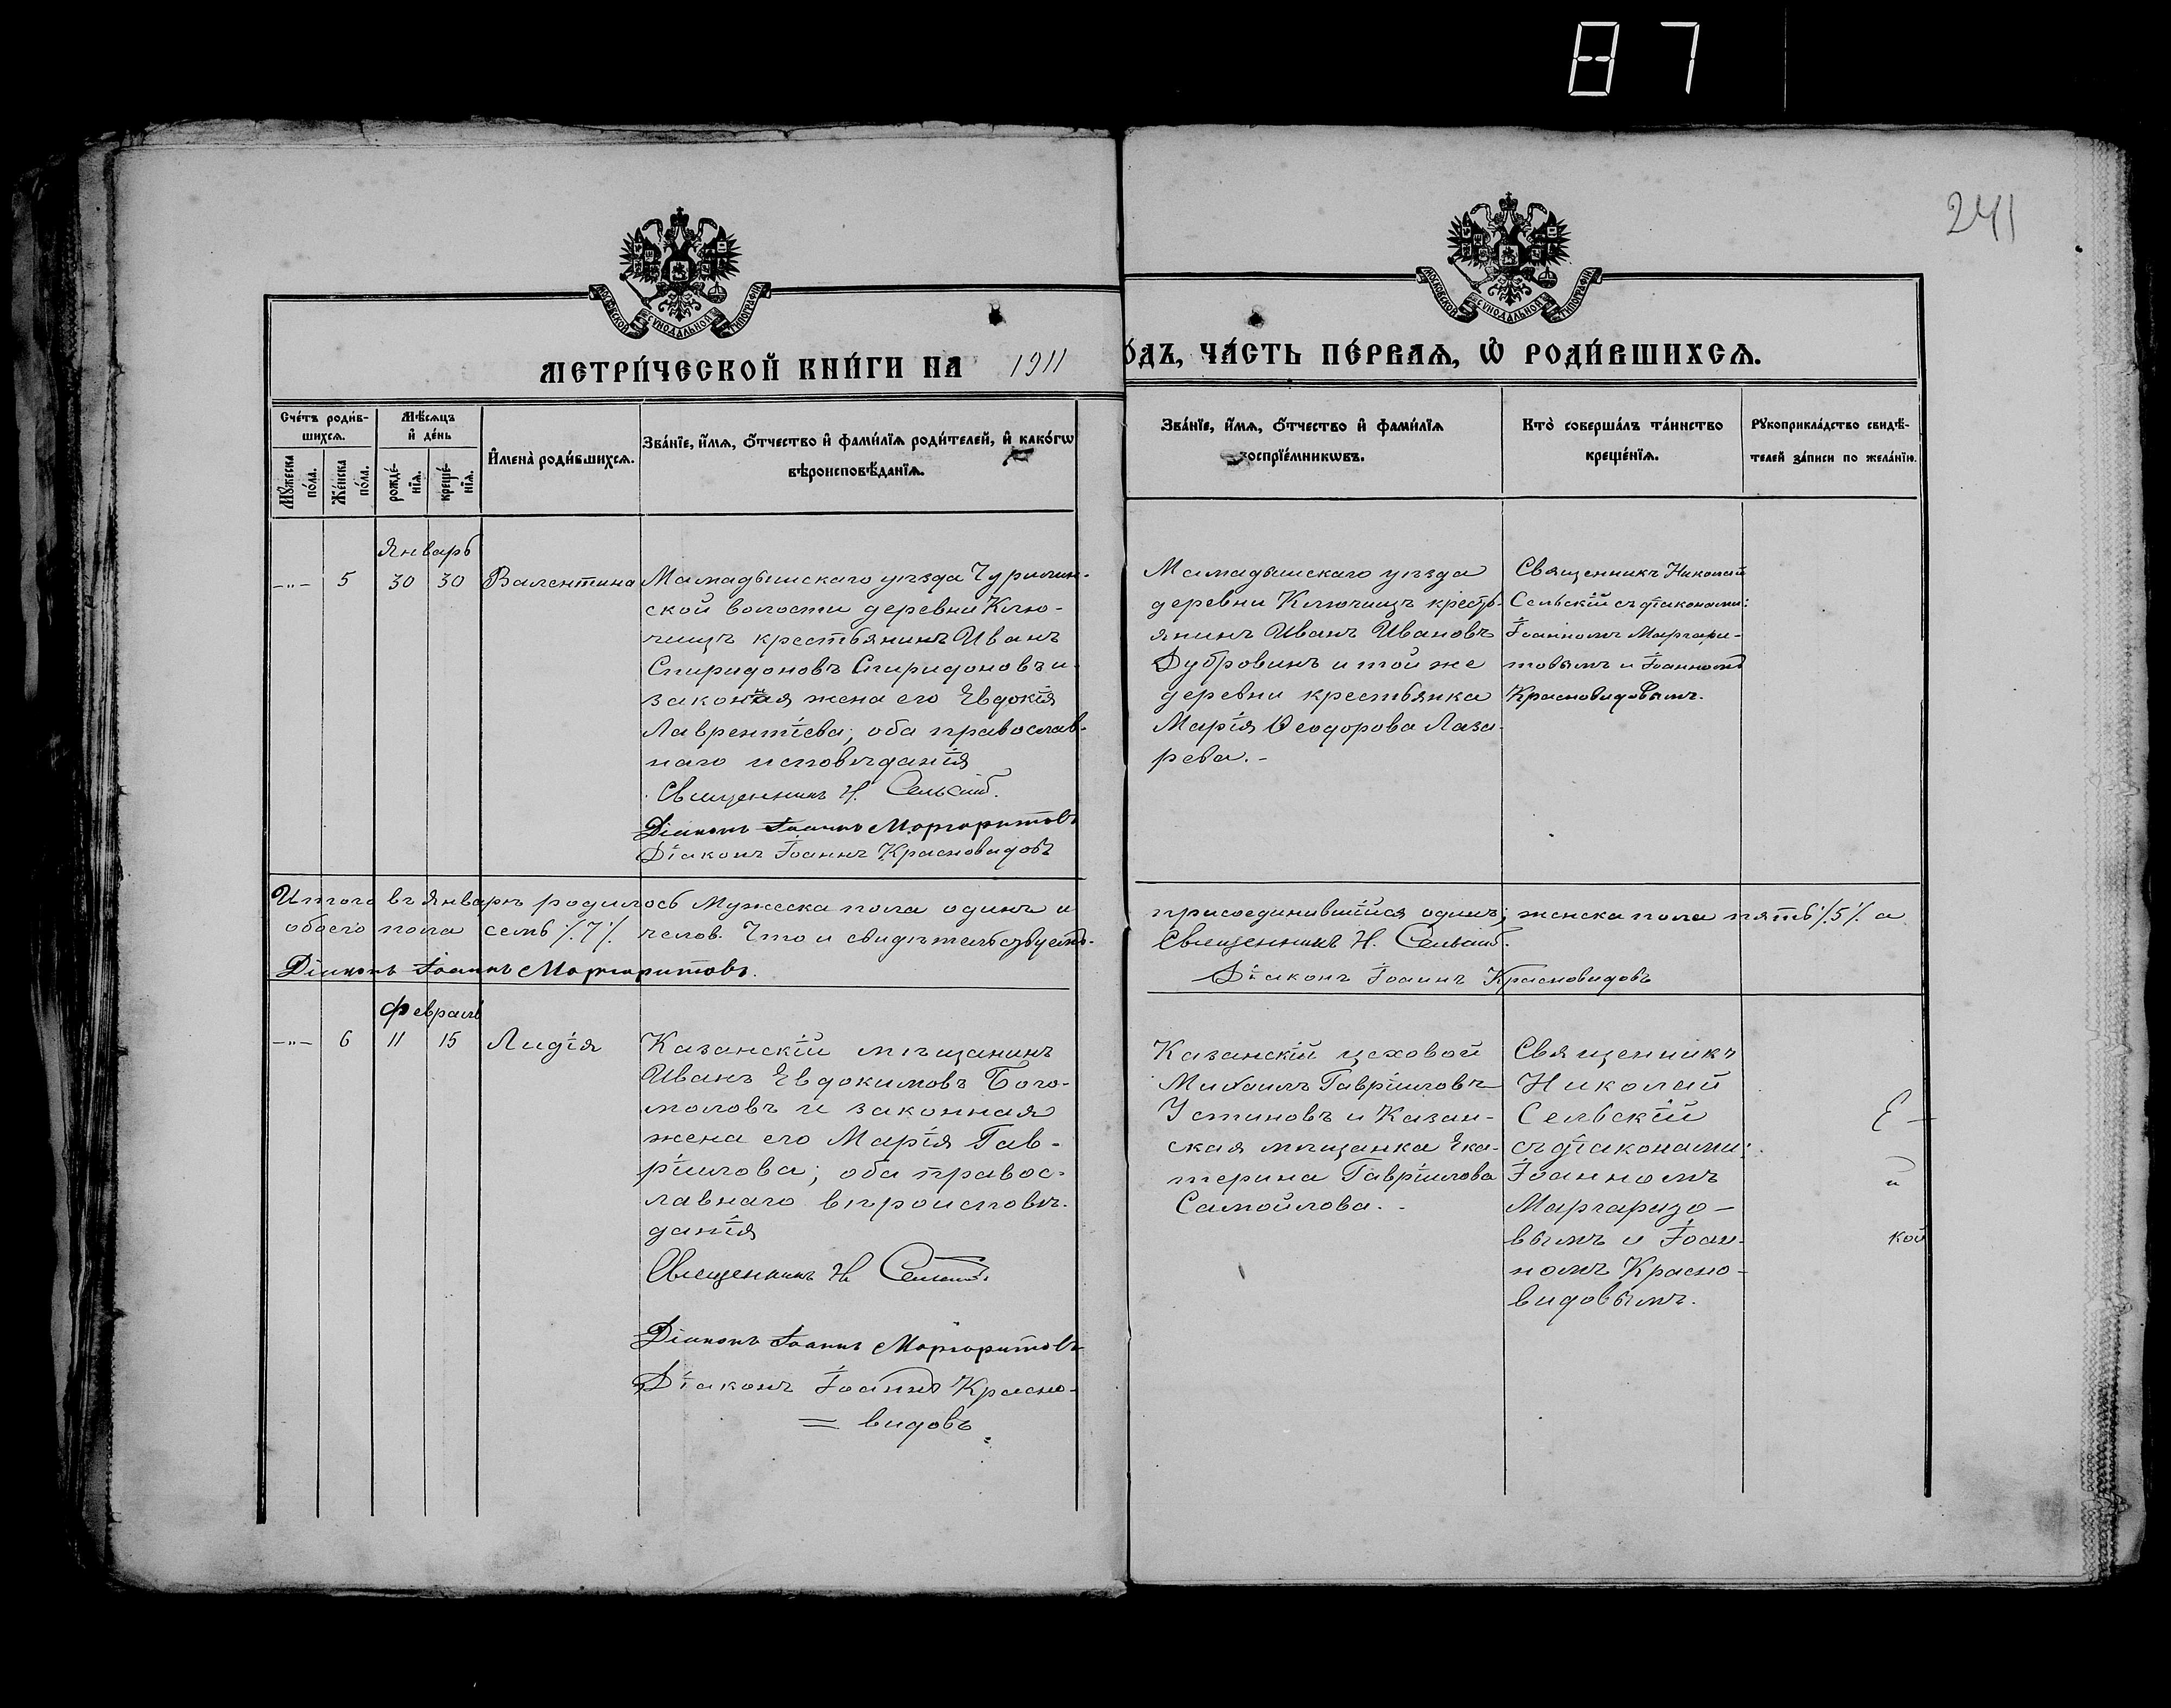 87
241
МОСКОВСКОЙ СѴНОДАЛЬНОЙ ТИПОГРАФІИ
МОСКОВСКОЙ СѴНОДАЛЬНОЙ ТИПОГРАФІИ
МЕТРИ́ЧЕСКОЙ КНИ́ГИ НА 1911
О́ДЪ, ЧА́СТЬ ПЕ́РВАѦ, Ѡ҆ РОДИ́ВШИХСѦ.
Сче́тъ роди́в-
шихсѧ.
Мꙋ́жеска по́ла.
Же́нска по́ла.
Мѣ́сѧцъ
и҆ де́нь
рожде́-
нїѧ.
креще́-
нїѧ.
И҆мена̀ роди́вшихсѧ.
Зва́нїе, и҆́мѧ, ѻ҆́тчество и҆ фами́лїѧ роди́телей, и҆ како́гѡ
вѣроисповѣ́данїѧ.
Зва́нїе, и҆́мѧ, ѻ҆́тчество и҆ фами́лїѧ
воспрїе́мникѡвъ.
Кто̀ соверша́лъ та́инство
креще́нїѧ.
Рꙋкоприкла́дство свидѣ́-
телей за́писи по жела́нїю.
Январь
-"- 5 30 30 Валентина
Мамадышскаго уѣзда Чурилин-
ской волости деревни Клю-
чищъ крестьянинъ Иванъ
Спиридоновъ Спиридоновъ и
законная жена его Евдокія
Лаврентіева; оба православ-
наго исповѣданія
Священникъ Н. Сельскій.
Діаконъ Іоаннъ Маргаритовъ
Діаконъ Іоаннъ Красновидовъ
Мамадышскаго уѣзда
деревни Ключищъ кресть-
янинъ Иванъ Ивановъ
Дубровинъ и той же
деревни крестьянка
Марія Ѳеодорова Лаза-
рева. -
Священникъ Николай
Сельскій съ діаконами:
Іоанномъ Маргари-
товымъ и Іоанномъ
Красновидовымъ.
Итого въ Январѣ родилось Мужеска пола одинъ и присоединившійся одинъ; женска пола пять ٪5٪ а
обоего пола семь ٪7٪ челов. Что и свидѣтельствуемъ. Священникъ Н. Сельскій.
Діаконъ Іоаннъ Маргаритовъ. Діаконъ Іоаннъ Красновидовъ
Февраль
-"- 6 11 15 Лидія
Казанскій мѣщанинъ
Иванъ Евдокимовъ Бого-
моловъ и законная
жена его Марія Гав-
ріилова; оба правос-
лавнаго вѣроисповѣ-
данія
Священникъ Н Сельскій.
Діаконъ Іоаннъ Маргаритовъ
Діаконъ Іоаннъ Красно-
= видовъ
Казанскій цеховой
Михаилъ Гавріиловъ
Устиновъ и Казан-
ская мѣщанка Ека-
терина Гавріилова
Самойлова. -
Священникъ
Николай
Сельскій
съ діаконами:
Іоанномъ
Маргарито-
вымъ и Іоан-
номъ Красно-
видовымъ.
й
кой